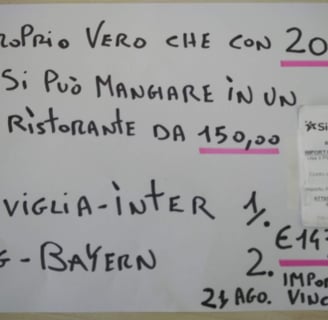 ROPRIO VERO CHE CON 20
SI PUÒ MANGIARE IN UN
RISTORANTE DA 150,00
VIGLIA-INTER 1.
G-BAYERN 2.
€14
IMPO
21 AGO. VINC